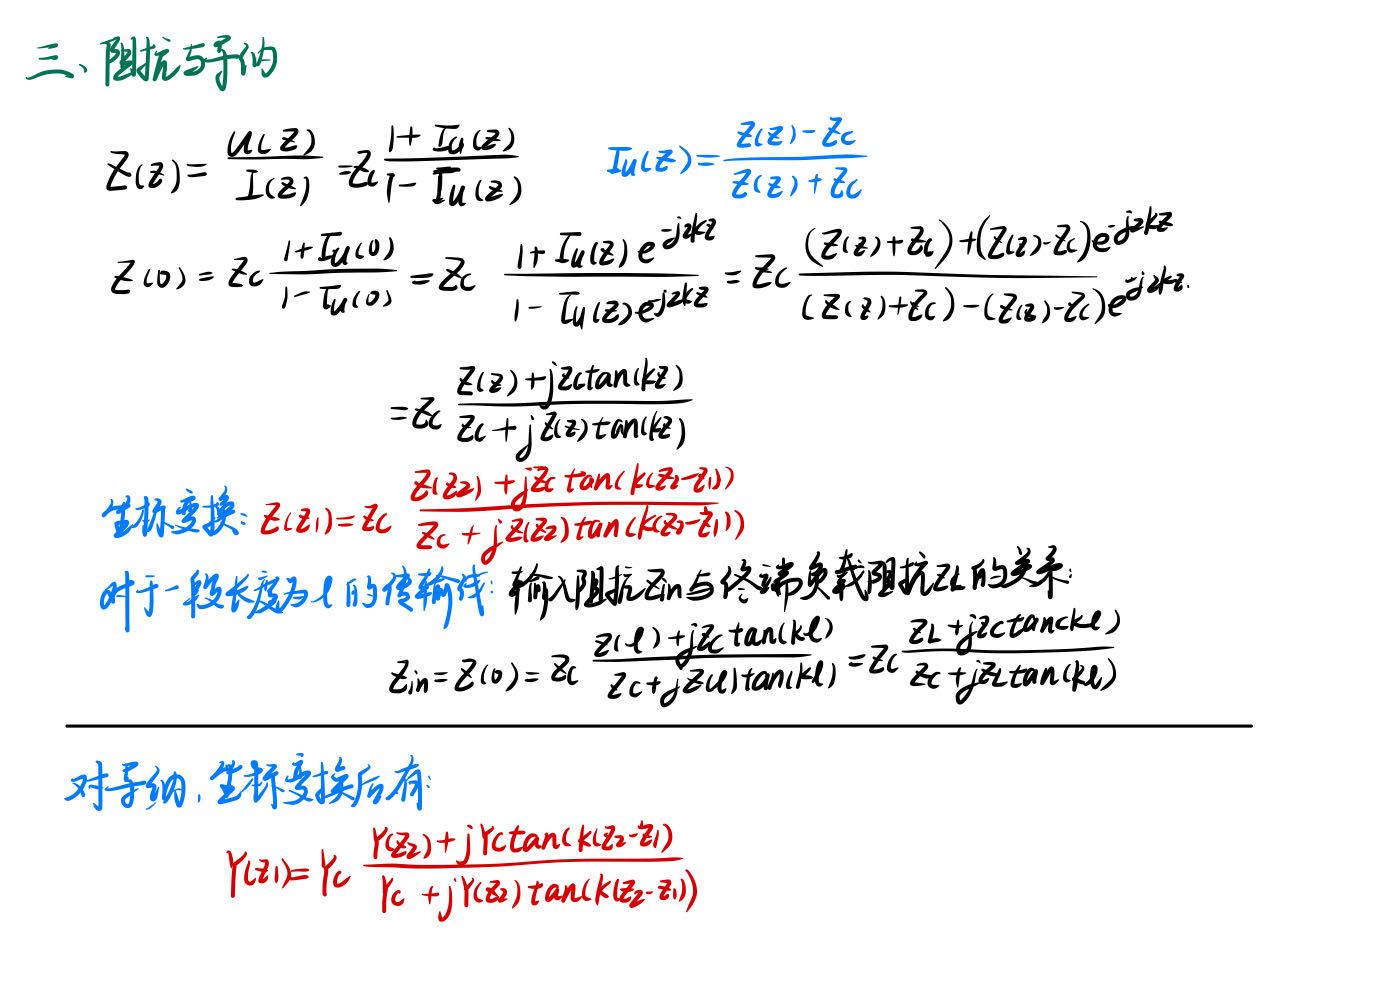 三、阻抗与导纳
Z(z) = U(z)/I(z) = Zc (1+Γu(z))/(1-Γu(z))    Γu(z) = (Z(z)-Zc)/(Z(z)+Zc)
Z(0) = Zc (1+Γu(0))/(1-Γu(0)) = Zc (1+Γu(z)e^{-j2kz})/(1-Γu(z)e^{-j2kz}) = Zc ((Z(z)+Zc)+(Z(z)-Zc)e^{-j2kz})/((Z(z)+Zc)-(Z(z)-Zc)e^{-j2kz})
= Zc (Z(z)+jZc tan(kz))/(Zc+jZ(z)tan(kz))
坐标变换: Z(z1) = Zc (Z(z2)+jZc tan(k(z2-z1)))/(Zc+jZ(z2)tan(k(z2-z1)))
对于一段长度为l的传输线: 输入阻抗Zin与终端负载阻抗ZL的关系:
Zin = Z(0) = Zc (Z(l)+jZc tan(kl))/(Zc+jZ(l)tan(kl)) = Zc (ZL+jZc tan(kl))/(Zc+jZL tan(kl))
对导纳,坐标变换后有:
Y(z1) = Yc (Y(z2)+jYc tan(k(z2-z1)))/(Yc+jY(z2)tan(k(z2-z1)))